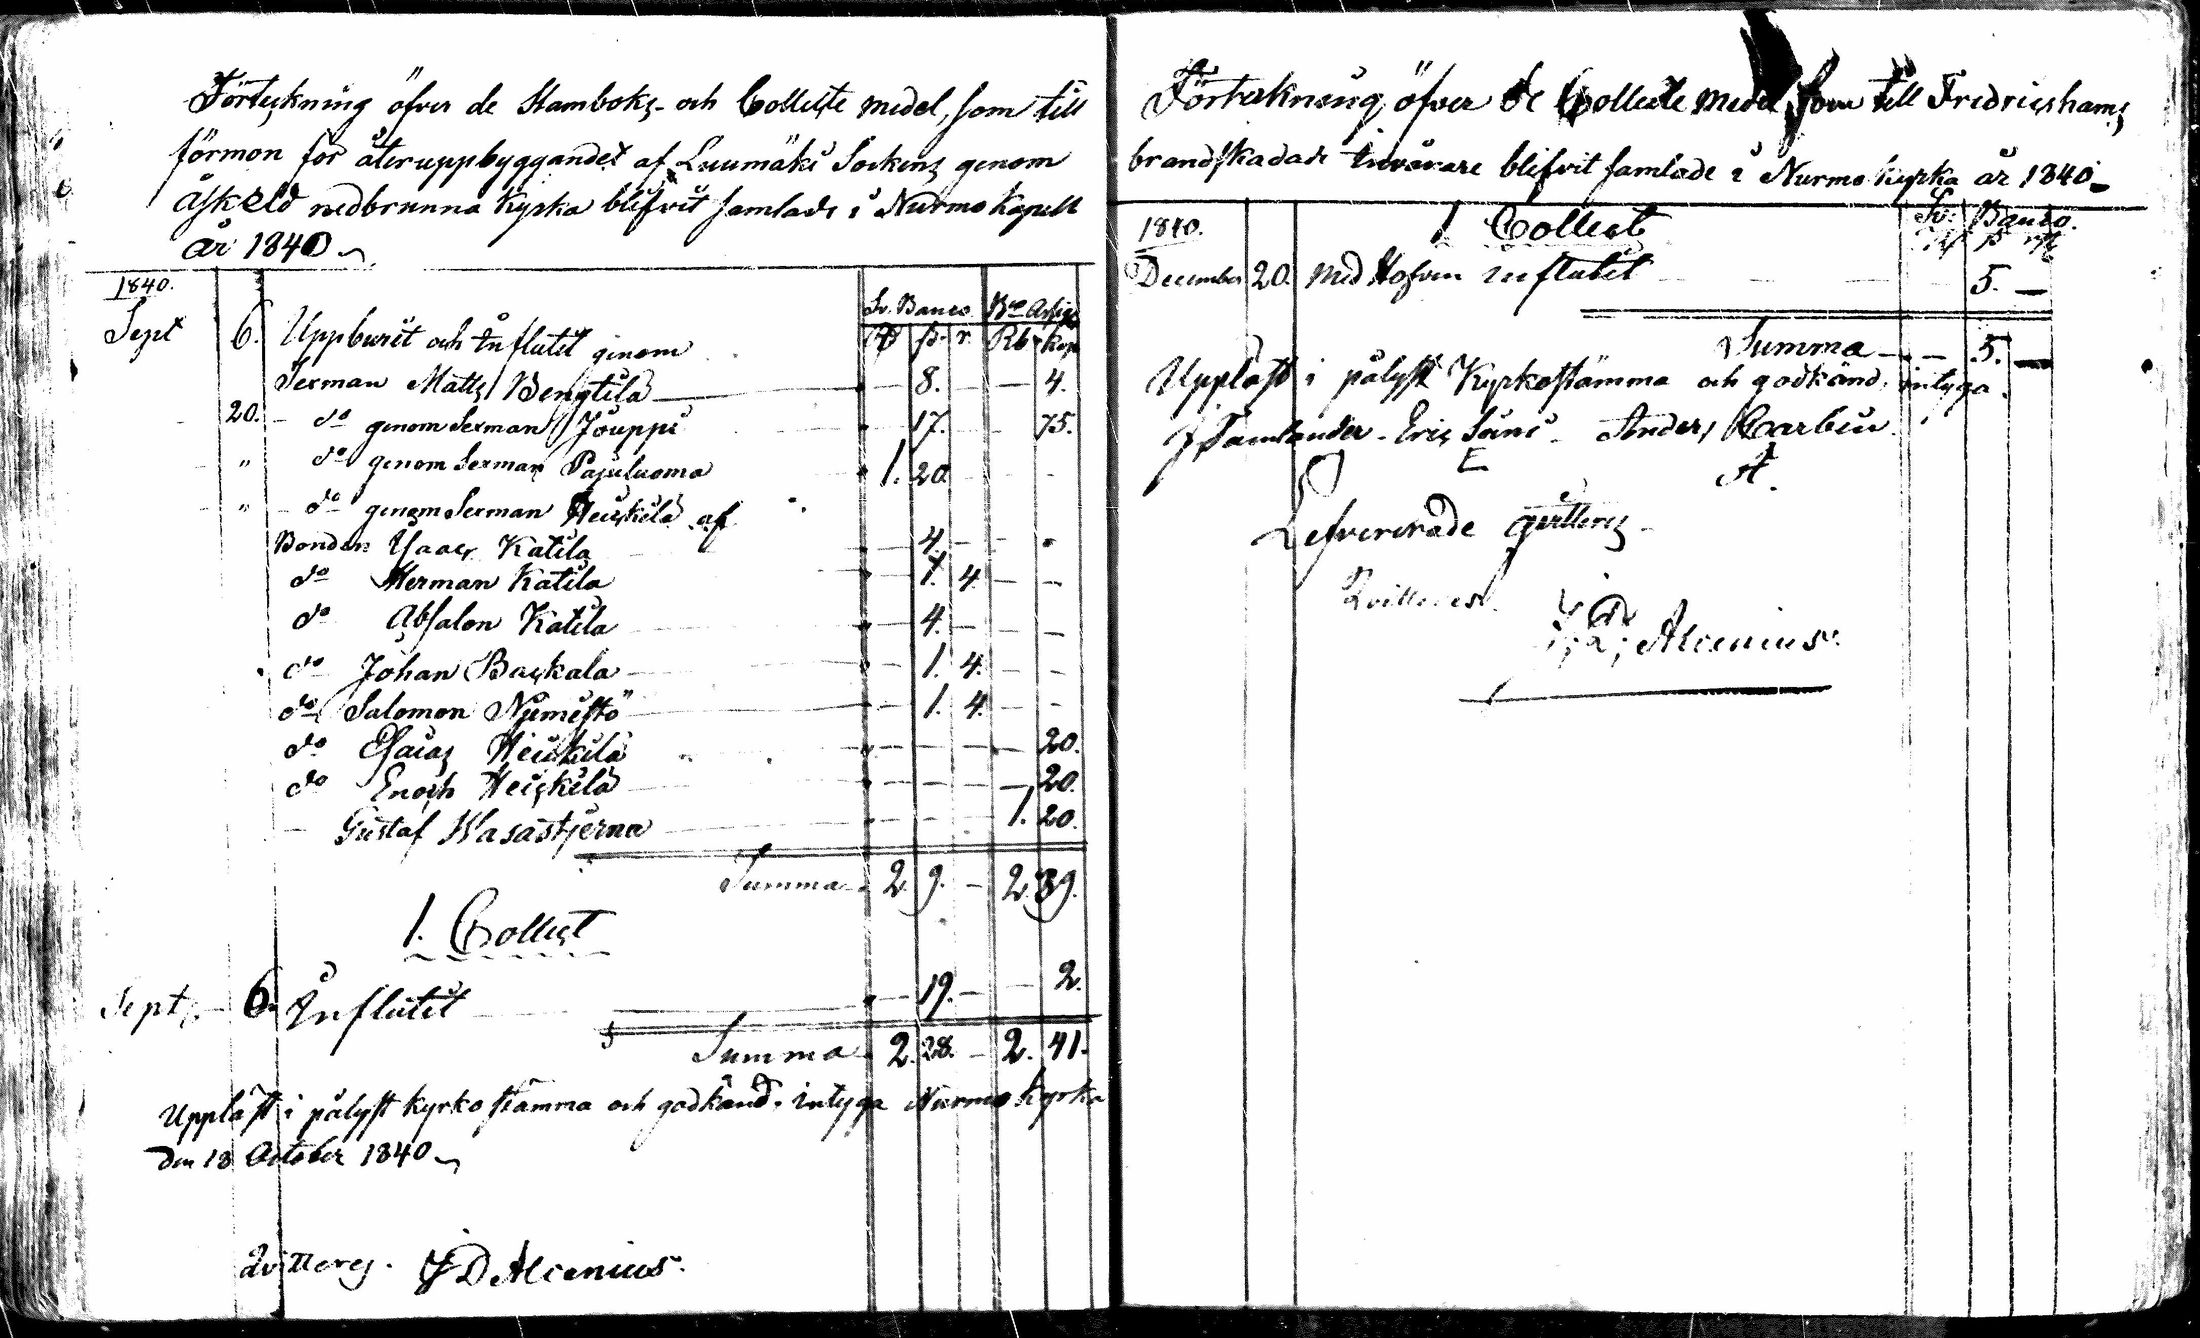 Förteckning öfver de Stamboks- och Collecte medel, som till
förmon för återuppbyggandet af Luumäki Sockens genom
åskeld nedbrunna Kyrka blifvit samlade i Nurmo Kapell
år 1840
1840.
Sv. Banco Bco Assign
Rd s. r. Rb. Kop
Sept 6. Uppburit och Influtit genom
Sexman Matts Bengtila — 8. — — 4.
20. do genom Sexman Jouppi 17. 75.
" do genom Sexman Pajuluoma 1. 20. — — —
" do genom Sexman Heickilä af
Bonden Isaac Katila — 4. — —
do Herman Katila — 1. 4. — —
do Absalon Katila — 4. — — —
do Johan Backala — 1. 4. — —
do Salomon Niemistö — 1. 4. — —
do Esaias Heickilä — — — — 20.
do Enoch Heickilä — — — — 20.
— Gustaf Wasastjerna — — — 1. 20.
Summa 2. 9. — 2. 39.
1. Collect
Sept. 6. Influtit — 19. — — 2.
Summa 2. 28. — 2. 41.
Uppläst i pålyst Kyrkostämma och godkänd, intyga Nurmo Kyrka
den 18 October 1840
Qvitteres. J D Alcenius.
Förteckning öfver de Collecte medel, som till Fredricshams
brandskadade Invånare blifvit samlade i Nurmo Kyrka år 1840
1840. 1 Collect Sv. Banco.
Rd s rst
December 20. Med Hofven influtit 5. —
Summa — — 5. —
Uppläst i pålyst Kyrkostämma och godkänd, intyga
J Tamlander - Eric Soini - Anders Carbin
E A.
Lefvererade qvitteres
Qvitteres.
J D Alcenius.